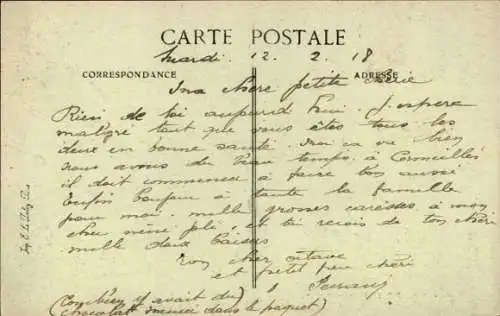 CARTE POSTALE
Mardi. 12. 2. 18
CORRESPONDANCE
ADRESSE
Ma chère petite
Rien de toi aujourd hui. J espere
malgré tout que vous êtes tous les
deux en bonne santé. va bien
nous avons du beau temps. à Cormeilles
il doit commencer à faire bon aussi
Enfin bonjour à toute la famille
pour moi. mille grosses caresses à mon
cher néné joli et toi recois de ton chère
mille doux baisers
Ton cher octave
et petit père chéri
(Combien y avait du
chocolat mince dans le paquet)